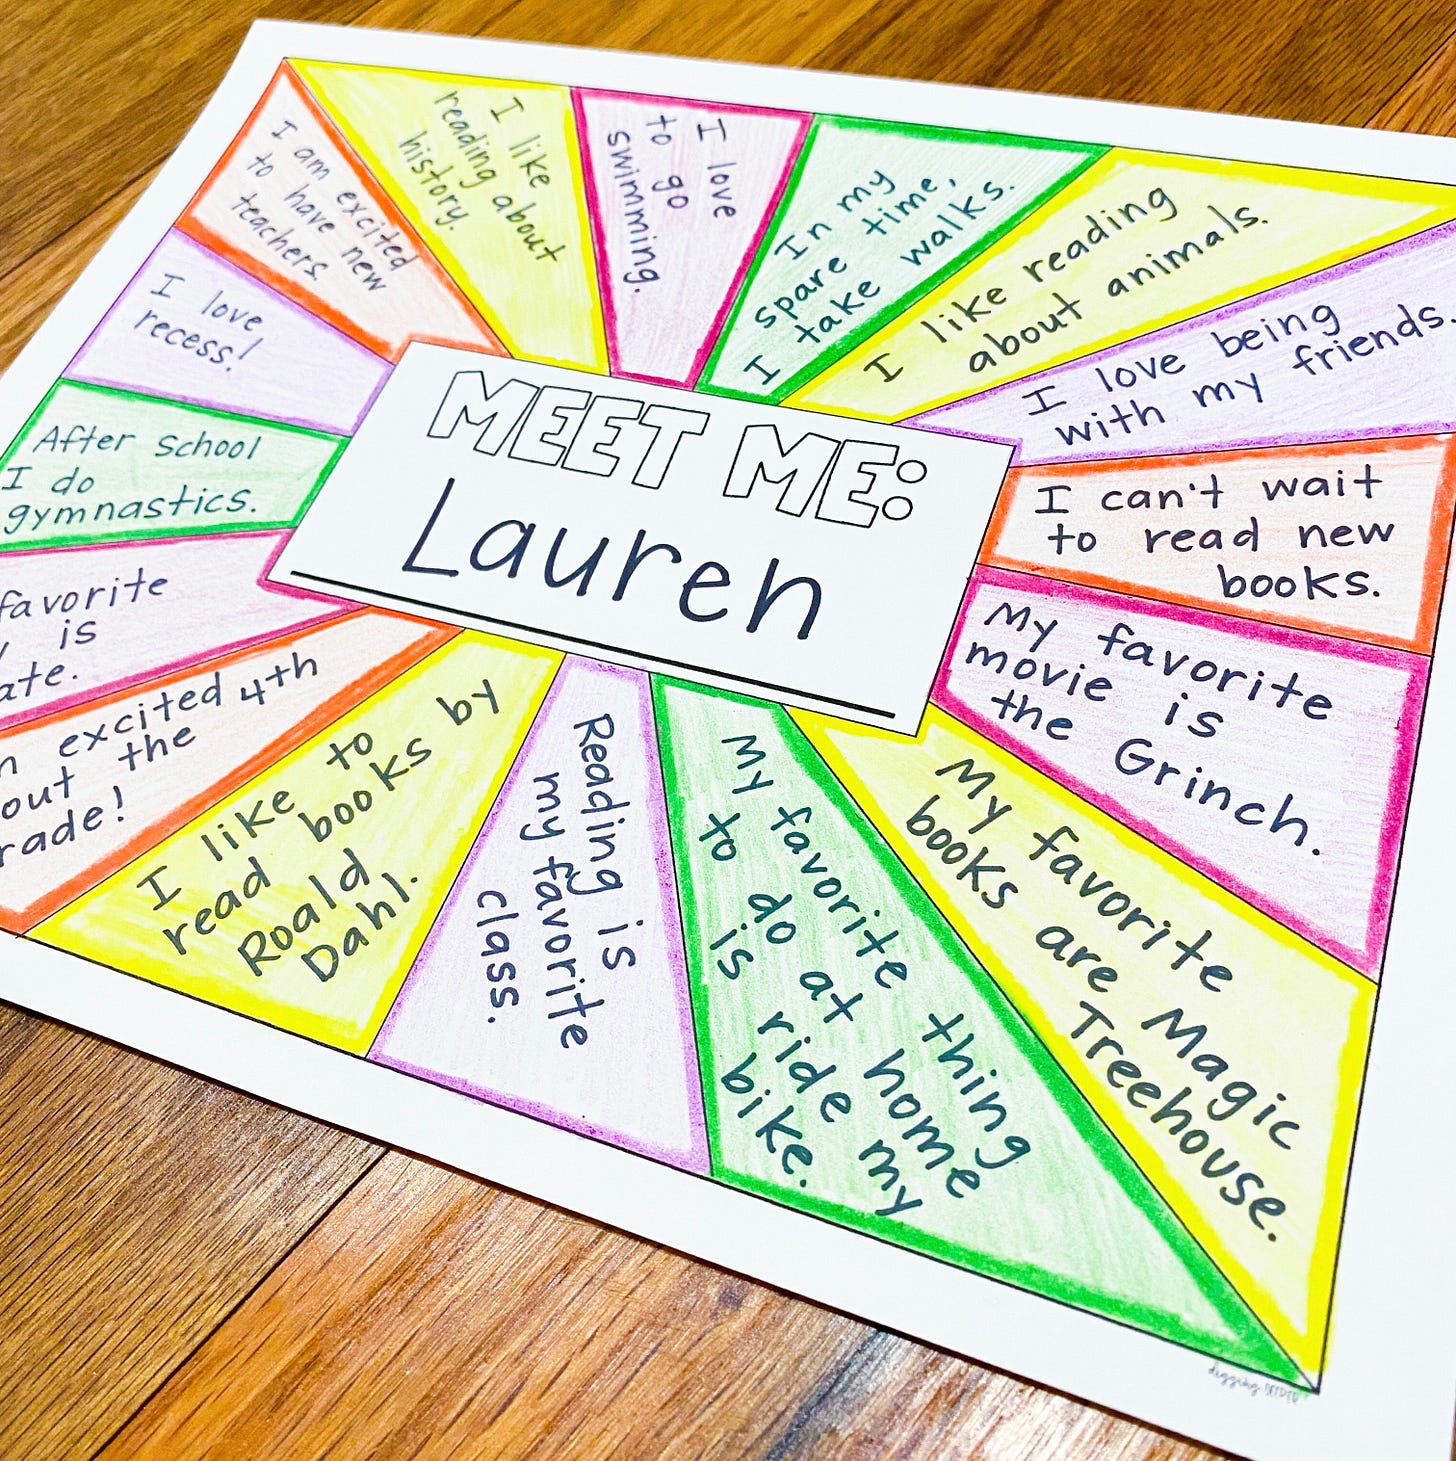 MEET ME:
Lauren
I am excited
to have new
teachers.
I like
reading about
history.
I love
to go
swimming.
In my
spare time,
I take walks.
I like reading
about animals.
I love being
with my friends.
I can't wait
to read new
books.
My favorite
movie is
the Grinch.
My favorite
books are Magic
Treehouse.
My favorite thing
to do at home
is ride my
bike.
Reading is
my favorite
class.
I like to
read books by
Roald
Dahl.
excited 4th
out the
rade!
favorite
is
ate.
After school
I do
gymnastics.
I love
recess!
digging deeper